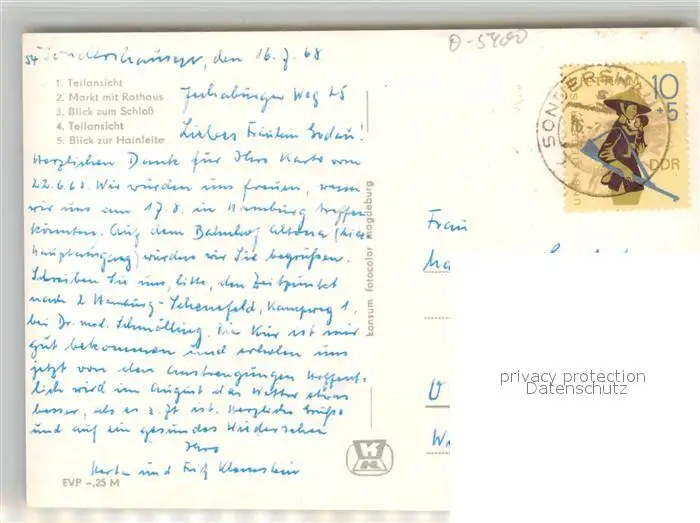 54 Sondershausen, den 16.7.68
O-5400
1. Teilansicht
2. Markt mit Rathaus
3. Blick zum Schloß
4. Teilansicht
5. Blick zur Hainleite
Jechaburger Weg 25
Liebes Fräulein
Herzlichen Dank für Ihre Karte vom
22.6.68. Wir würden uns freuen, wenn
wir uns am 17.8. in Hamburg treffen
könnten. Auf dem Bahnhof Altona (hier
Hauptausgang) würden wir Sie begrüßen.
Schreiben Sie uns, bitte, den Zeitpunkt
nach 2 Hamburg-Schenefeld, Kampweg 1,
bei Dr. med. Schmölling. Die Kur ist mir
gut bekommen und erholen uns
jetzt von den Anstrengungen. Hoffent-
lich wird im August das Wetter etwas
besser, als es z. Zt. ist. Herzliche Grüße
und auf ein gesundes Wiedersehen
Ihre
Herta und Fritz
EVP -,25 M
konsum fotocolor magdeburg
SONDERSH
VIETNAM
10
+5
DDR
Frau
privacy protection
Datenschutz